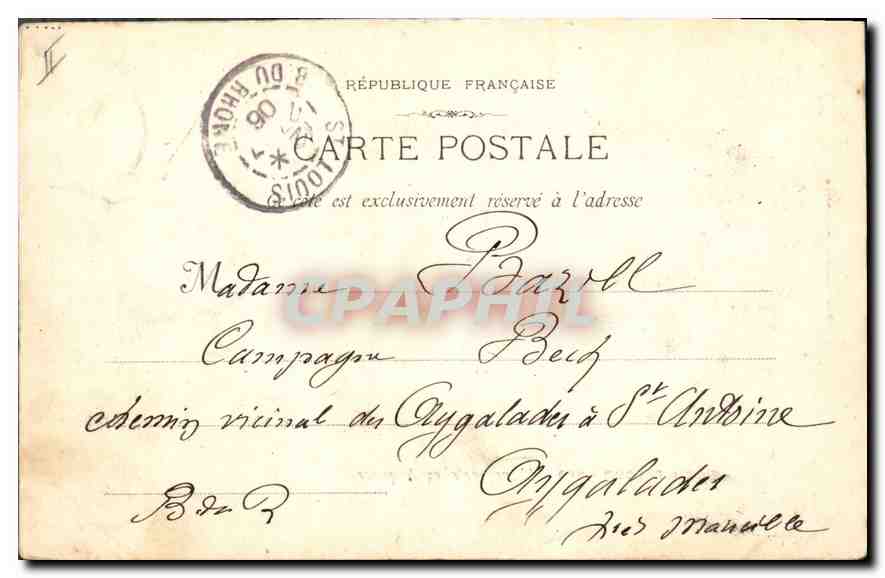 II
RÉPUBLIQUE FRANÇAISE
CARTE POSTALE
Ce côté est exclusivement réservé à l'adresse
ST LOUIS B. DU RHONE
06
Madame Bazoll
CPAPHIL
Campagne Beck
chemin vicinal des Aygalades à St Antoine
Aygalades
B du R
près Marseille